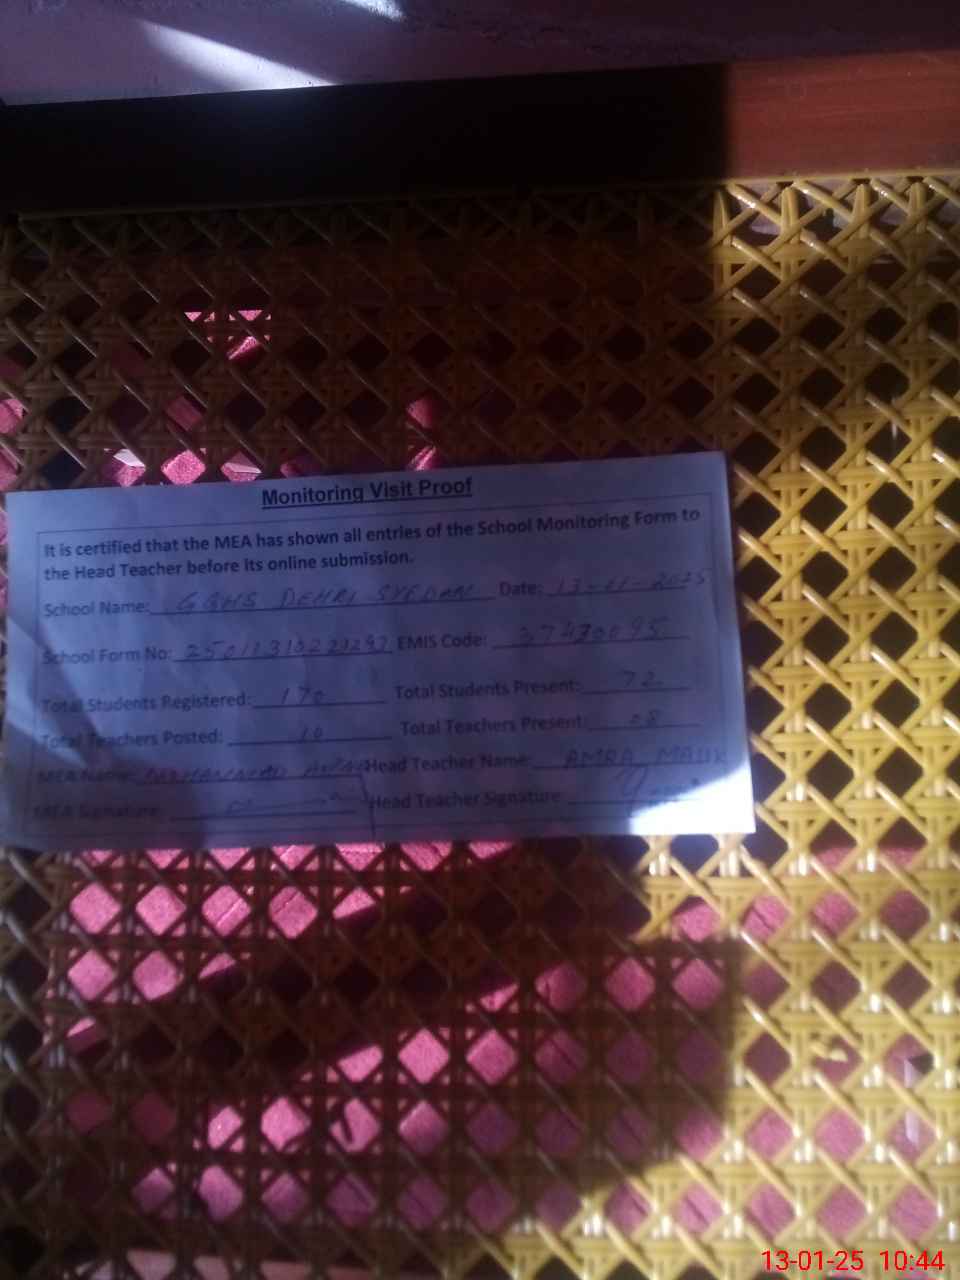 Monitoring Visit Proof
It is certified that the MEA has shown all entries of the School Monitoring Form to
the Head Teacher before its online submission.
School Name: GGHS DEHRI SYEDAN Date: 13-01-2025
School Form No: EMIS Code: 37430095
Total Students Registered: 170 Total Students Present: 72
Total Teachers Posted: 10 Total Teachers Present: 08
MEA Name: MUHAMMAD Head Teacher Name: AMRA MALIK
MEA Signature: Head Teacher Signature:
13-01-25 10:44